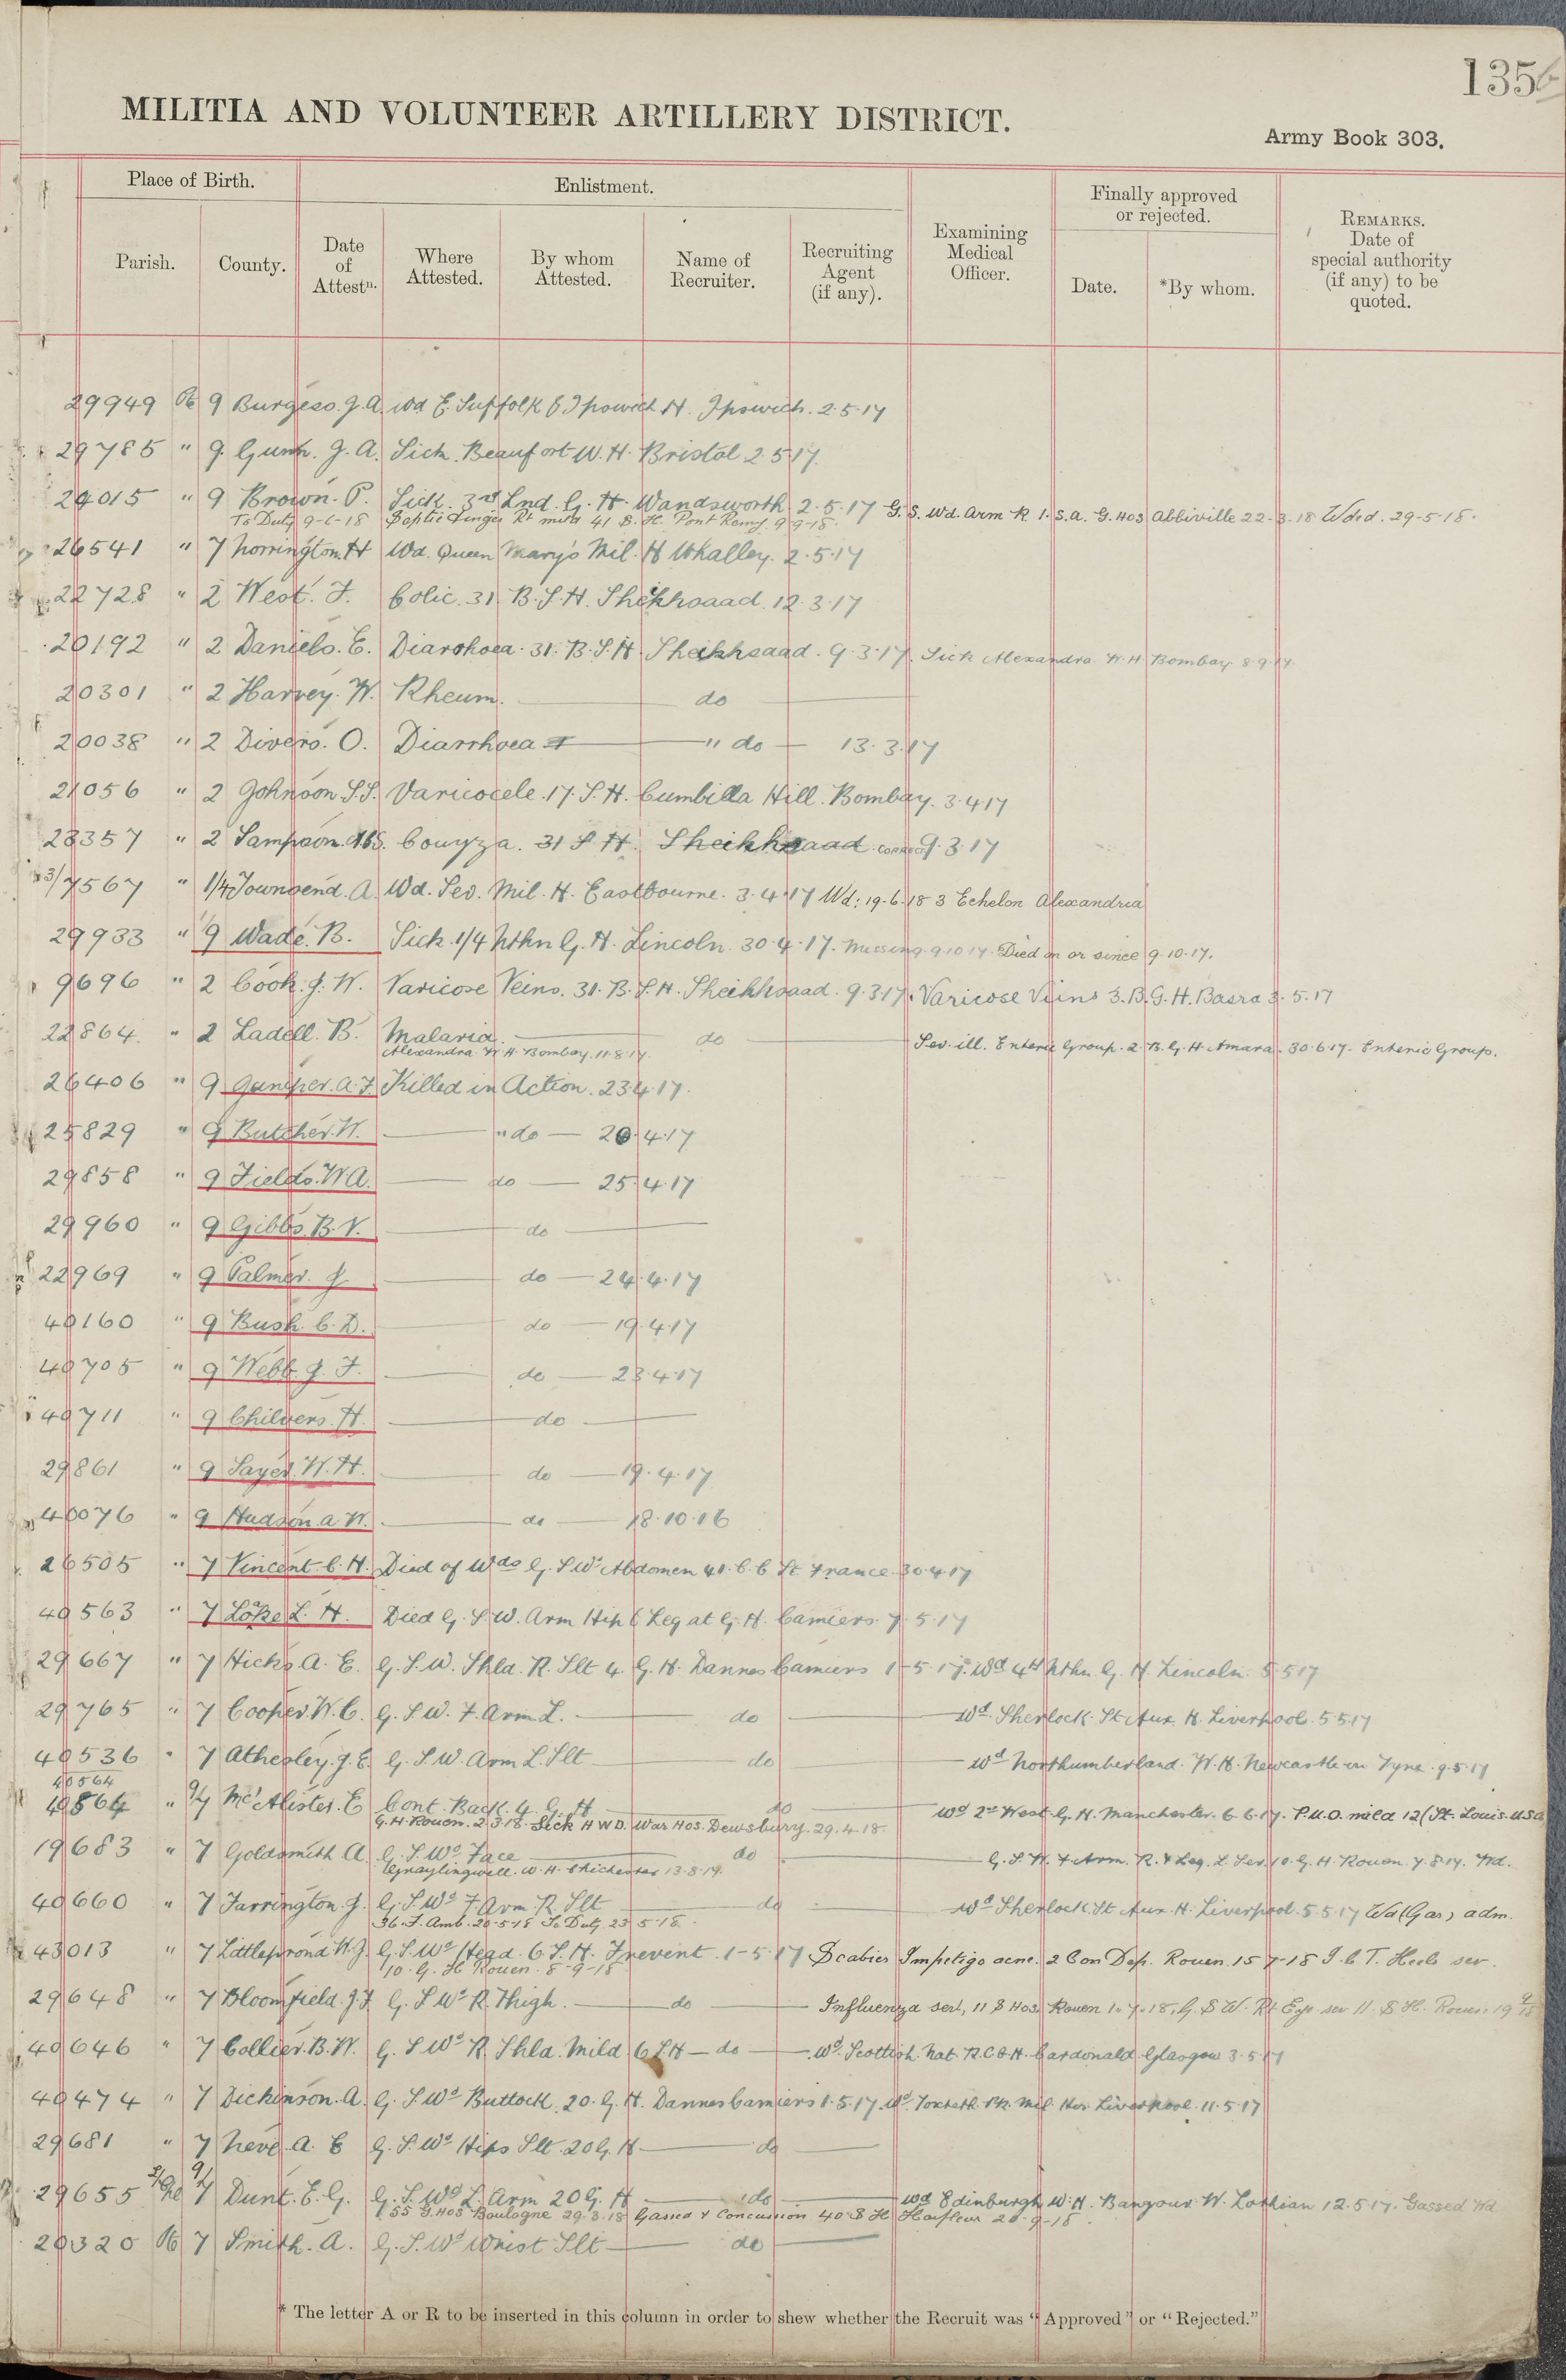 135
MILITIA AND VOLUNTEER ARTILLERY DISTRICT.
Army Book 303.
Place of Birth.
Enlistment.
Finally approved or rejected.
Parish.
County.
Date of Attestn.
Where Attested.
By whom Attested.
Name of Recruiter.
Recruiting Agent (if any).
Examining Medical Officer.
Date.
*By whom.
REMARKS. Date of special authority (if any) to be quoted.
29949 Pte 9 Burgess. J.A. Wd E. Suffolk & Ipswich H. Ipswich. 2.5.17
29785 " 9. Gunn. J. A. Sick. Beaufort W. H. Bristol 2.5.17.
24015 " 9 Brown. P. Sick. 3rd Lnd. G. H. Wandsworth 2.5.17 G.S. Wd. Arm R 1. S.A. G. Hos Abbiville 22.3.18 Wdsd. 29-5-18.
To Duty 9-6-18 Septic Finger Rt mild 41 S. H. Pont Remy. 9-9-18.
26541 " 7 Norrington. H Wd. Queen Mary's Mil. H Whalley. 2.5.17
22728 " 2 West. F. Colic. 31 B.S.H. Sheikhsaad. 12.3.17
20192 " 2 Daniels. E. Diarrhoea. 31. B.S.H. Sheikhsaad. 9.3.17. Sick Alexandra W. H Bombay 8.9.17.
20301 " 2 Harvey. W. Rheum. do
20038 " 2 Divers. O. Diarrhoea " do 13.3.17
21056 " 2 Johnson S.S. Varicocele. 17. S. H. Cumbilla Hill. Bombay. 3.4.17
23357 " 2 Sampson. Couyza. 31 S. H. Sheikhsaad CORRECT 9.3.17
3/7567 " 1/4 Townsend. A. Wd. Sev. Mil. H. Eastbourne. 3.4.17 Wd: 19-6-18 3 Echelon Alexandria
29933 " 9 Wade. B. Sick. 1/4 Nthn G. H. Lincoln. 30.4.17. Missing 9.10.17. Died on or since 9.10.17.
9696 " 2 Cook. J. W. Varicose Veins. 31. B.S.H. Sheikhsaad. 9.3.17. Varicose Veins 3. B. G. H. Basra 3.5.17
22864. " 2 Ladell. B. Malaria. do Sev. ill. Enteric Group. 2 B. G. H Amara. 30.6.17. Enteric Group.
Alexandra W. H. Bombay. 11.8.17.
26406 " 9 Juniper. A. F. Killed in Action. 23.4.17.
25829 " 9 Butcher. W. " do 20.4.17
29858 " 9 Fields. W.A. do 25.4.17
29960 " 9 Gibbs. B. V. do
22969 " 9 Palmer. J. do 24.4.17
40160 " 9 Bush C. D. do 19.4.17
40705 " 9 Webb. J. F. do 23.4.17
40711 " 9 Chilvers. H. do
29861 " 9 Sayer. W. H. do 19.4.17
40076 " 9 Hudson. A. W. do 18.10.16
26505 " 7 Vincent. C. H. Died of Wds G. S Wd Abdomen 41. C. C St France. 30.4.17
40563 " 7 Loke L. H. Died G. S. W. Arm Hip & Leg at G. H. Camiers. 7.5.17
29667 " 7 Hicks. A. E. G. S. W. Shld. R. Slt 4. G. H. Dannes Camiers 1-5.17. Wd 4th Nthn G. H. Lincoln 5.5.17
29765 " 7 Cooper. W. C. G. S. W. F. Arm L. do Wd. Sherlock. St Aux. H. Liverpool. 5.5.17
40536 " 7 Athersley. J. E. G. S. W. Arm L. Slt do Wd Northumberland. W. H. Newcastle on Tyne. 9.5.17
40564
40864 " 9/7 McAlister. E Cont. Back. 4. G. H do Wd 2nd West. G. H. Manchester. 6.6.17. P.U.O. mild 12 (St. Louis. USA
G. H. Rouen. 2.3.18. Sick H W D. War Hos. Dewsbury. 29.4.18.
19683 " 7 Goldsmith A. G. S. Wd Face do G. S. W. F Arm. R. & Leg. L. Sev. 10. G. H. Rouen. 7.8.17. Wd.
Graylingwell. W. H. Chichester 13.8.17.
40660 " 7 Farrington. J. G. S. Wd F Arm. R. Slt do Wd Sherlock. St Aux. H. Liverpool. 5.5.17 Wd (Gas) adm.
36. F. Amb. 20-5-18 To Duty 23-5-18.
43013 " 7 Littleproud W. J. G. S. Wd Head. 6. S. H. Frevent. 1-5.17 Scabies Impetigo acne. 2 Con Dep. Rouen. 15-7-18 I. C T. Heels sev.
10. G. H Rouen 8-9-18
29648 " 7 Bloomfield. J. F. G. S Wd R. Thigh. do Influenza sevt, 11 S Hos. Rouen 1.7.18. G. S W. Rt Eye sev 11 S H. Rouen 19 9/18
40646 " 7 Collier. B. W. G. S Wd R. Shld. Mild. 6 S H do Wd. Scottish. Nat. R. C. & H. Cardonald. Glasgow 3.5.17
40474 " 7 Dickinson. A. G. S Wd Buttock. 20. G. H. Dannes Camiers 1.5.17. Wd Toxteth. Pk. Mil. Hos Liverpool. 11.5.17
29681 " 7 Neve. A. E G. S. Wd Hips Slt. 20 G. H do
29655 9/7 Dunt. E. G. G. S. Wd L. Arm 20 G. H do Wd Edinburgh W. H. Bangour W. Lothian 12.5.17. Gassed Wd
55 G. Hos Boulogne 29.3.18 Gassed & Concussion 40 S H Harfleur 20-9-18
20320 Pte 7 Smith. A. G. S. Wd Wrist Slt do
* The letter A or R to be inserted in this column in order to shew whether the Recruit was "Approved" or "Rejected."